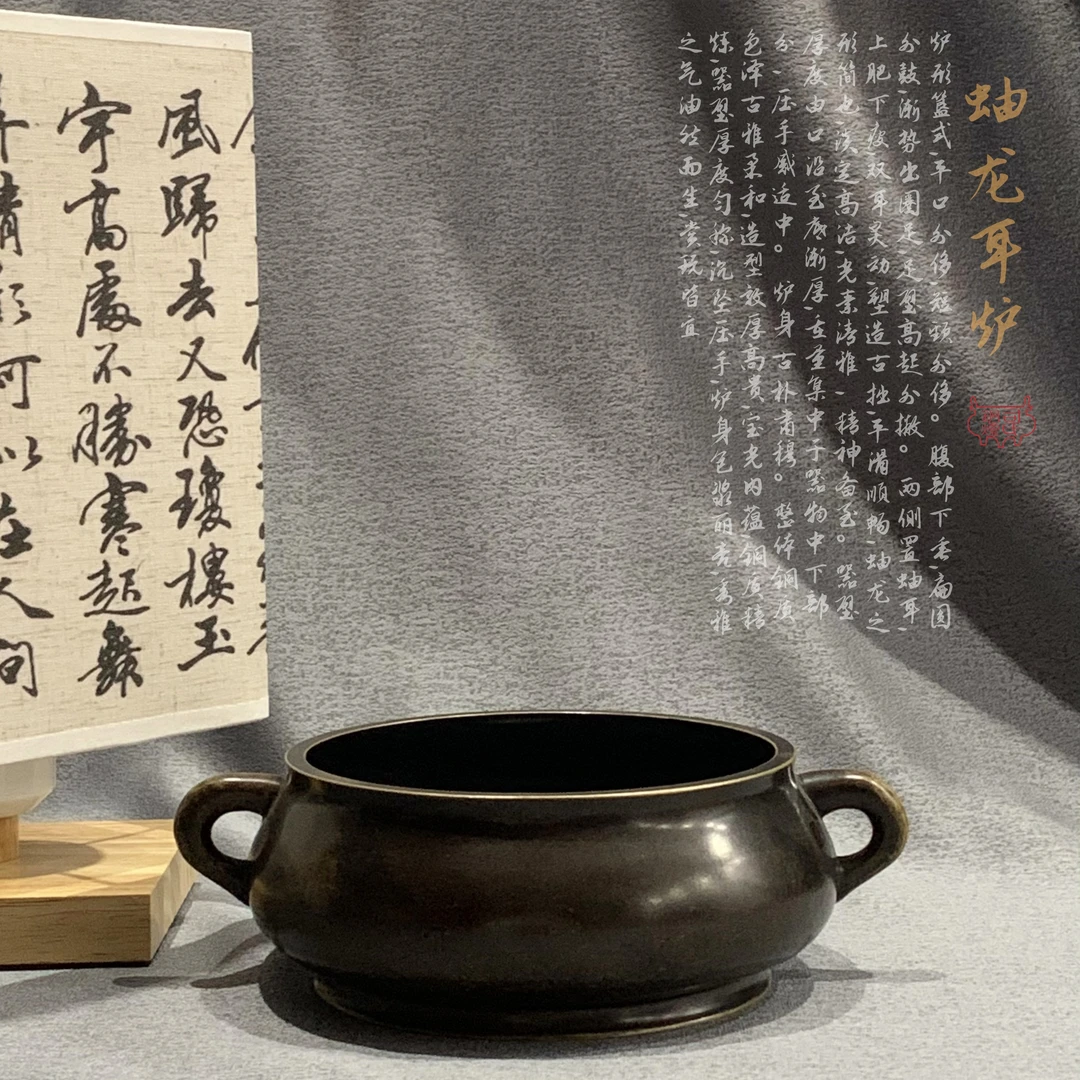 蚰龙耳炉
炉形簋式，平口外侈，短颈外侈。腹部下垂，扁圆
外鼓，渐势出圈足，足壁高起外撇。两侧置蚰耳，
上肥下瘦，双耳灵动，塑造古拙，平滑顺畅，蚰龙之
形简也，淡定高洁，光素清雅，精神备至。器壁
厚度由口沿至底渐厚，重量集中于器物中下部
分，压手感适中。炉身古朴肃穆。整体铜质
色泽古雅柔和，造型敦厚高贵，宝光内蕴，铜质精
炼，器壁厚度匀称，沉坠压手，炉身包浆明亮，秀雅
之气油然而生，赏玩皆宜
風歸去又恐瓊樓玉
宇高處不勝寒起舞
弄清影何似在人間